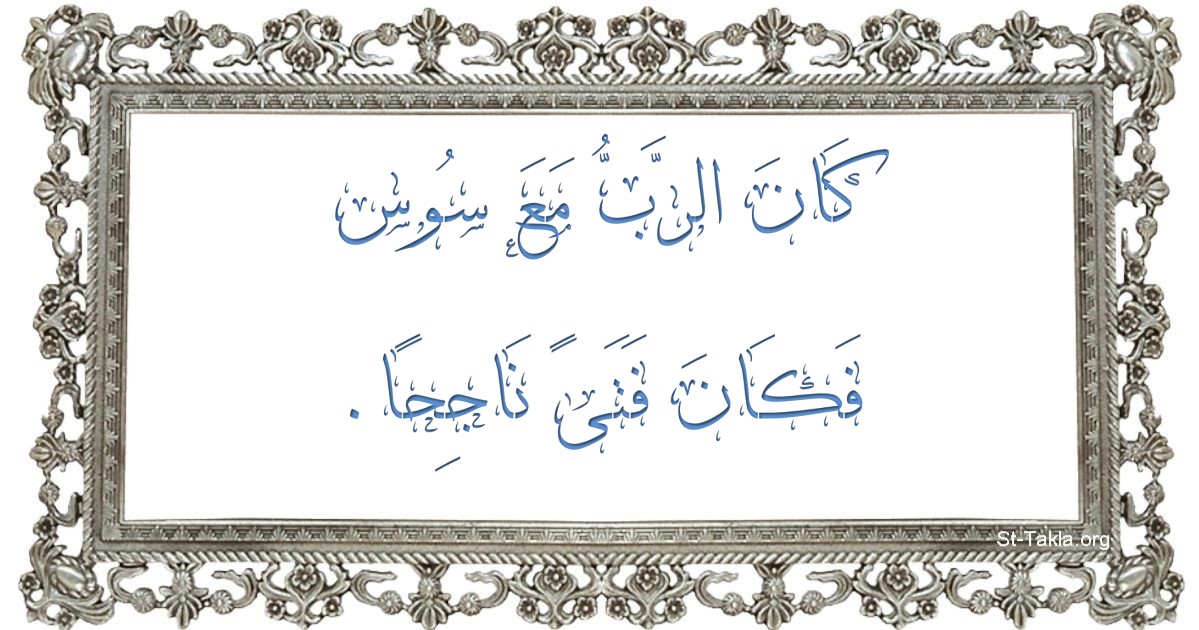 كَانَ الرَّبُّ مَعَ سُوس
فَكَانَ فَتَىً نَاجِحًا .
St-Takla.org